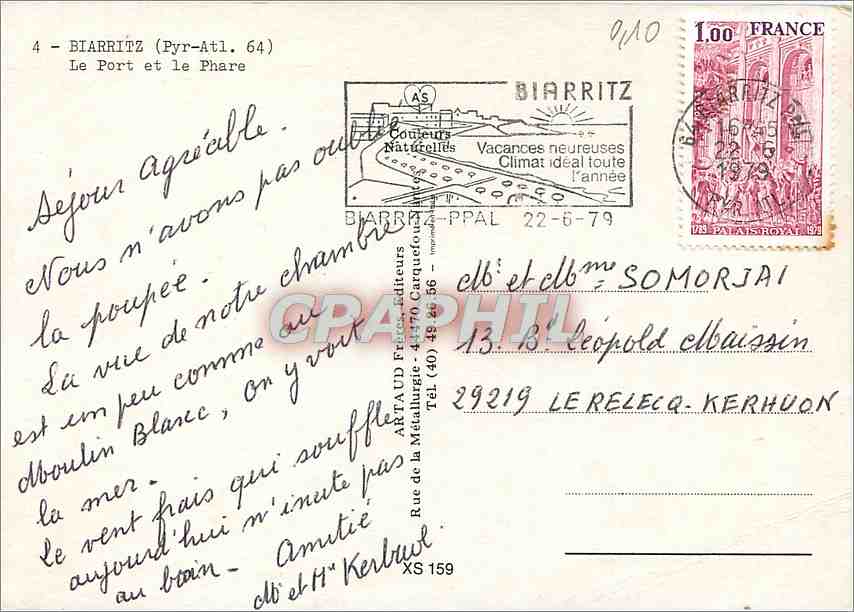 4 - BIARRITZ (Pyr-Atl. 64)
Le Port et le Phare
0,10
1.00 FRANCE
1789 PALAIS ROYAL 1979
BIARRITZ PPAL
22-6
1979
PYR. ATL.
AS
BIARRITZ
Couleurs
Naturelles
Vacances heureuses
Climat idéal toute
l'année
BIARRITZ-PPAL 22-6-79
Séjour agréable.
Nous n'avons pas oublié
la poupée.
La vue de notre chambre
est un peu comme au
Moulin Blanc, on y voit
la mer.
Le vent frais qui souffle
aujourd'hui n'incite pas
au bain - Amitié
Mr et Mme
ARTAUD Frères, Editeurs
Rue de la Métallurgie - 44470 Carquefou
Tél. (40) 49.26.56 -
XS 159
Mr et Mme SOMORJAI
13. Bd Léopold Maissin
29219 LE RELECQ-KERHUON
CPAPHIL